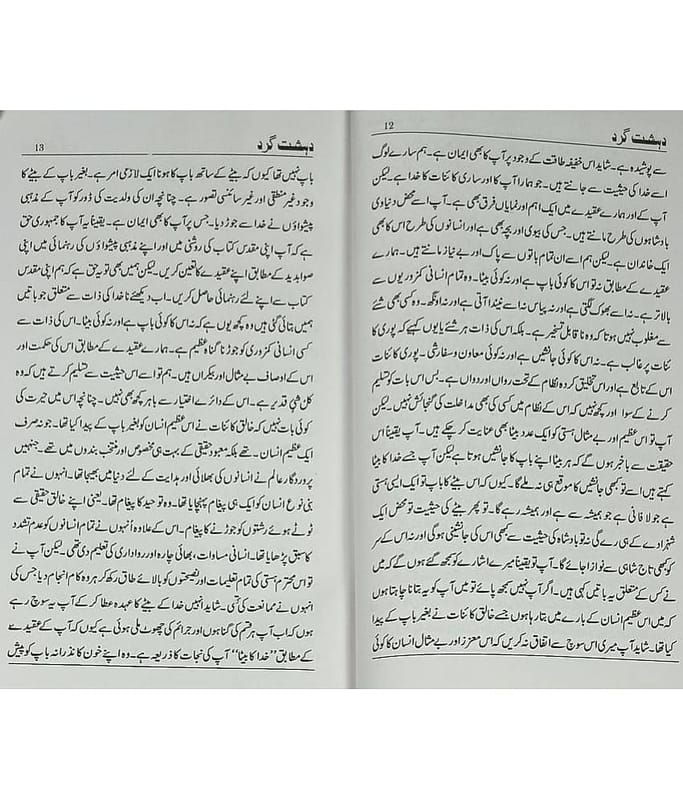 دہشت گرد
12
سے پوشیدہ ہے۔ شاید اس خفیفہ طاقت کے وجود پر آپ کا بھی ایمان ہے۔ ہم سارے لوگ
اسے خدا کی حیثیت سے جانتے ہیں۔ جو ہمارا آپ کا اور ساری کائنات کا خدا ہے لیکن
آپ کے اور ہمارے عقیدے میں ایک اہم اور نمایاں فرق بھی ہے۔ آپ اسے محض دنیاوی
بادشاہوں کی طرح مانتے ہیں۔ جس کی بیوی اور بچہ بھی ہے اور انسانوں کی طرح اس کا بھی
ایک خاندان ہے۔ لیکن ہم اسے ان تمام باتوں سے پاک اور بے نیاز مانتے ہیں۔ ہمارے
عقیدے کے مطابق نہ تو اس کا کوئی باپ ہے اور نہ کوئی بیٹا۔ وہ تمام انسانی کمزوریوں سے
بالاتر ہے۔ نہ اسے بھوک لگتی ہے اور نہ پیاس نہ اسے نیند آتی ہے اور نہ اونگھ۔ وہ کسی بھی شئے
سے مغلوب نہیں ہوتا کہ وہ نا قابل تسخیر ہے۔ بلکہ اس کی ذات ہر شئے یا یوں کہیے کہ پوری کا
ئنات پر غالب ہے۔ نہ اس کا کوئی جانشیں ہے اور نہ کوئی معاون و سفارشی۔ پوری کائنات
اس کے تابع ہے اور اس تخلیق کردہ نظام کے تحت رواں اور دواں ہے۔ بس اس بات کو تسلیم
کرنے کے سوا اور کچھ نہیں کہ اس کے نظام میں کسی کی بھی مداخلت کی گنجائش نہیں۔ لیکن
آپ تو اس عظیم اور بے مثال ہستی کو ایک عدد بیٹا بھی عنایت کر چکے ہیں۔ آپ یقیناً اس
حقیقت سے باخبر ہوں گے کہ ہر بیٹا اپنے باپ کا جانشیں ہوتا ہے لیکن آپ جسے خدا کا بیٹا
کہتے ہیں اسے تو کبھی جانشیں کا موقع ہی نہ ملے گا۔ کیوں کہ اس بیٹے کا باپ تو ایک ایسی ہستی
ہے جو لافانی ہے جو ہمیشہ سے ہے اور ہمیشہ رہے گا۔ تو پھر بیٹے کی حیثیت تو محض ایک
شہزادے کے ہی رہے گی نہ تو بادشاہ کی حیثیت سے کبھی اس کی جانشینی ہوگی اور نہ اس کے سر
کو کبھی تاج شاہی سے نوازا جائے گا۔ آپ تو یقیناً میرے اشارے کو سمجھ گئے ہوں گے کہ میں
نے کس کے متعلق یہ باتیں کہی ہیں۔ اگر آپ نہیں سمجھ پائے تو میں آپ کو یہ بتانا چاہتا ہوں
کہ میں اس عظیم انسان کے بارے میں بتا رہا ہوں جسے خالق کائنات نے بغیر باپ کے پیدا
کیا تھا۔ شاید آپ میری اس سوچ سے اتفاق نہ کریں کہ اس معزز اور بے مثال انسان کا کوئی
دہشت گرد
13
باپ نہیں تھا کیوں کہ بیٹے کے ساتھ باپ کا ہونا ایک لازمی امر ہے۔ بغیر باپ کے بیٹے کا
وجود غیر منطقی اور غیر سائنسی تصور ہے۔ چنانچہ ان کی ولدیت کی ڈور کو آپ کے مذہبی
پیشواؤں نے خدا سے جوڑ دیا۔ جس پر آپ کا بھی ایمان ہے۔ یقیناً یہ آپ کا جمہوری حق
ہے کہ آپ اپنی مقدس کتاب کی روشنی میں اور اپنے مذہبی پیشواؤں کی رہنمائی میں اپنی
صوابدید کے مطابق اپنے عقیدے کا تعین کریں۔ لیکن ہمیں بھی تو یہ حق ہے کہ ہم اپنی مقدس
کتاب سے اپنے لئے رہنمائی حاصل کریں۔ اب دیکھئے نا خدا کی ذات سے متعلق جو باتیں
ہمیں بتائی گئی ہیں وہ کچھ یوں ہے کہ نہ اس کا کوئی باپ ہے اور نہ کوئی بیٹا۔ اس کی ذات سے
کسی انسانی کمزوری کو جوڑنا گناہ عظیم ہے۔ ہمارے عقیدے کے مطابق اس کی حکمت اور
اس کے اوصاف بے مثال اور بیکراں ہیں۔ ہم تو اسے اس حیثیت سے تسلیم کرتے ہیں کہ وہ
کل شئی قدیر ہے۔ اس کے دائرے اختیار سے باہر کچھ بھی نہیں۔ چنانچہ اس میں حیرت کی
کوئی بات نہیں کہ خالق کائنات نے اس عظیم انسان کو بغیر باپ کے پیدا کیا تھا۔ جو نہ صرف
ایک عظیم انسان۔ تھے بلکہ معبود حقیقی کے بہت ہی مخصوص اور منتخب بندوں میں تھے۔ جنہیں
پروردگار عالم نے انسانوں کی بھلائی اور ہدایت کے لئے دنیا میں بھیجا تھا۔ انہوں نے تمام
بنی نوع انسان کو ایک ہی پیغام پہنچایا تھا۔ وہ توحید کا پیغام تھا۔ یعنی اپنے خالق حقیقی سے
ٹوٹے ہوئے رشتوں کو جوڑنے کا پیغام۔ اس کے علاوہ اُنہوں نے تمام انسانوں کو عدم تشدد
کا سبق پڑھایا تھا۔ انسانی مساوات، بھائی چارہ اور رواداری کی تعلیم دی تھی۔ لیکن آپ نے
تو اس محترم ہستی کی تمام تعلیمات اور نصیحتوں کو بالائے طاق رکھ کر ہر وہ کام انجام دیا جس کی
انہوں نے ممانعت کی تھی۔ شاید انہیں خدا کے بیٹے کا عہدہ عطا کر کے آپ یہ سوچ رہے
ہوں کہ اب آپ ہر قسم کی گناہوں اور جرائم کی چھوٹ ملی ہوئی ہے کیوں کہ آپ کے عقیدے
کے مطابق ”خدا کا بیٹا“ آپ کی نجات کا ذریعہ ہے۔ وہ اپنے خون کا نذرانہ باپ کو پیش